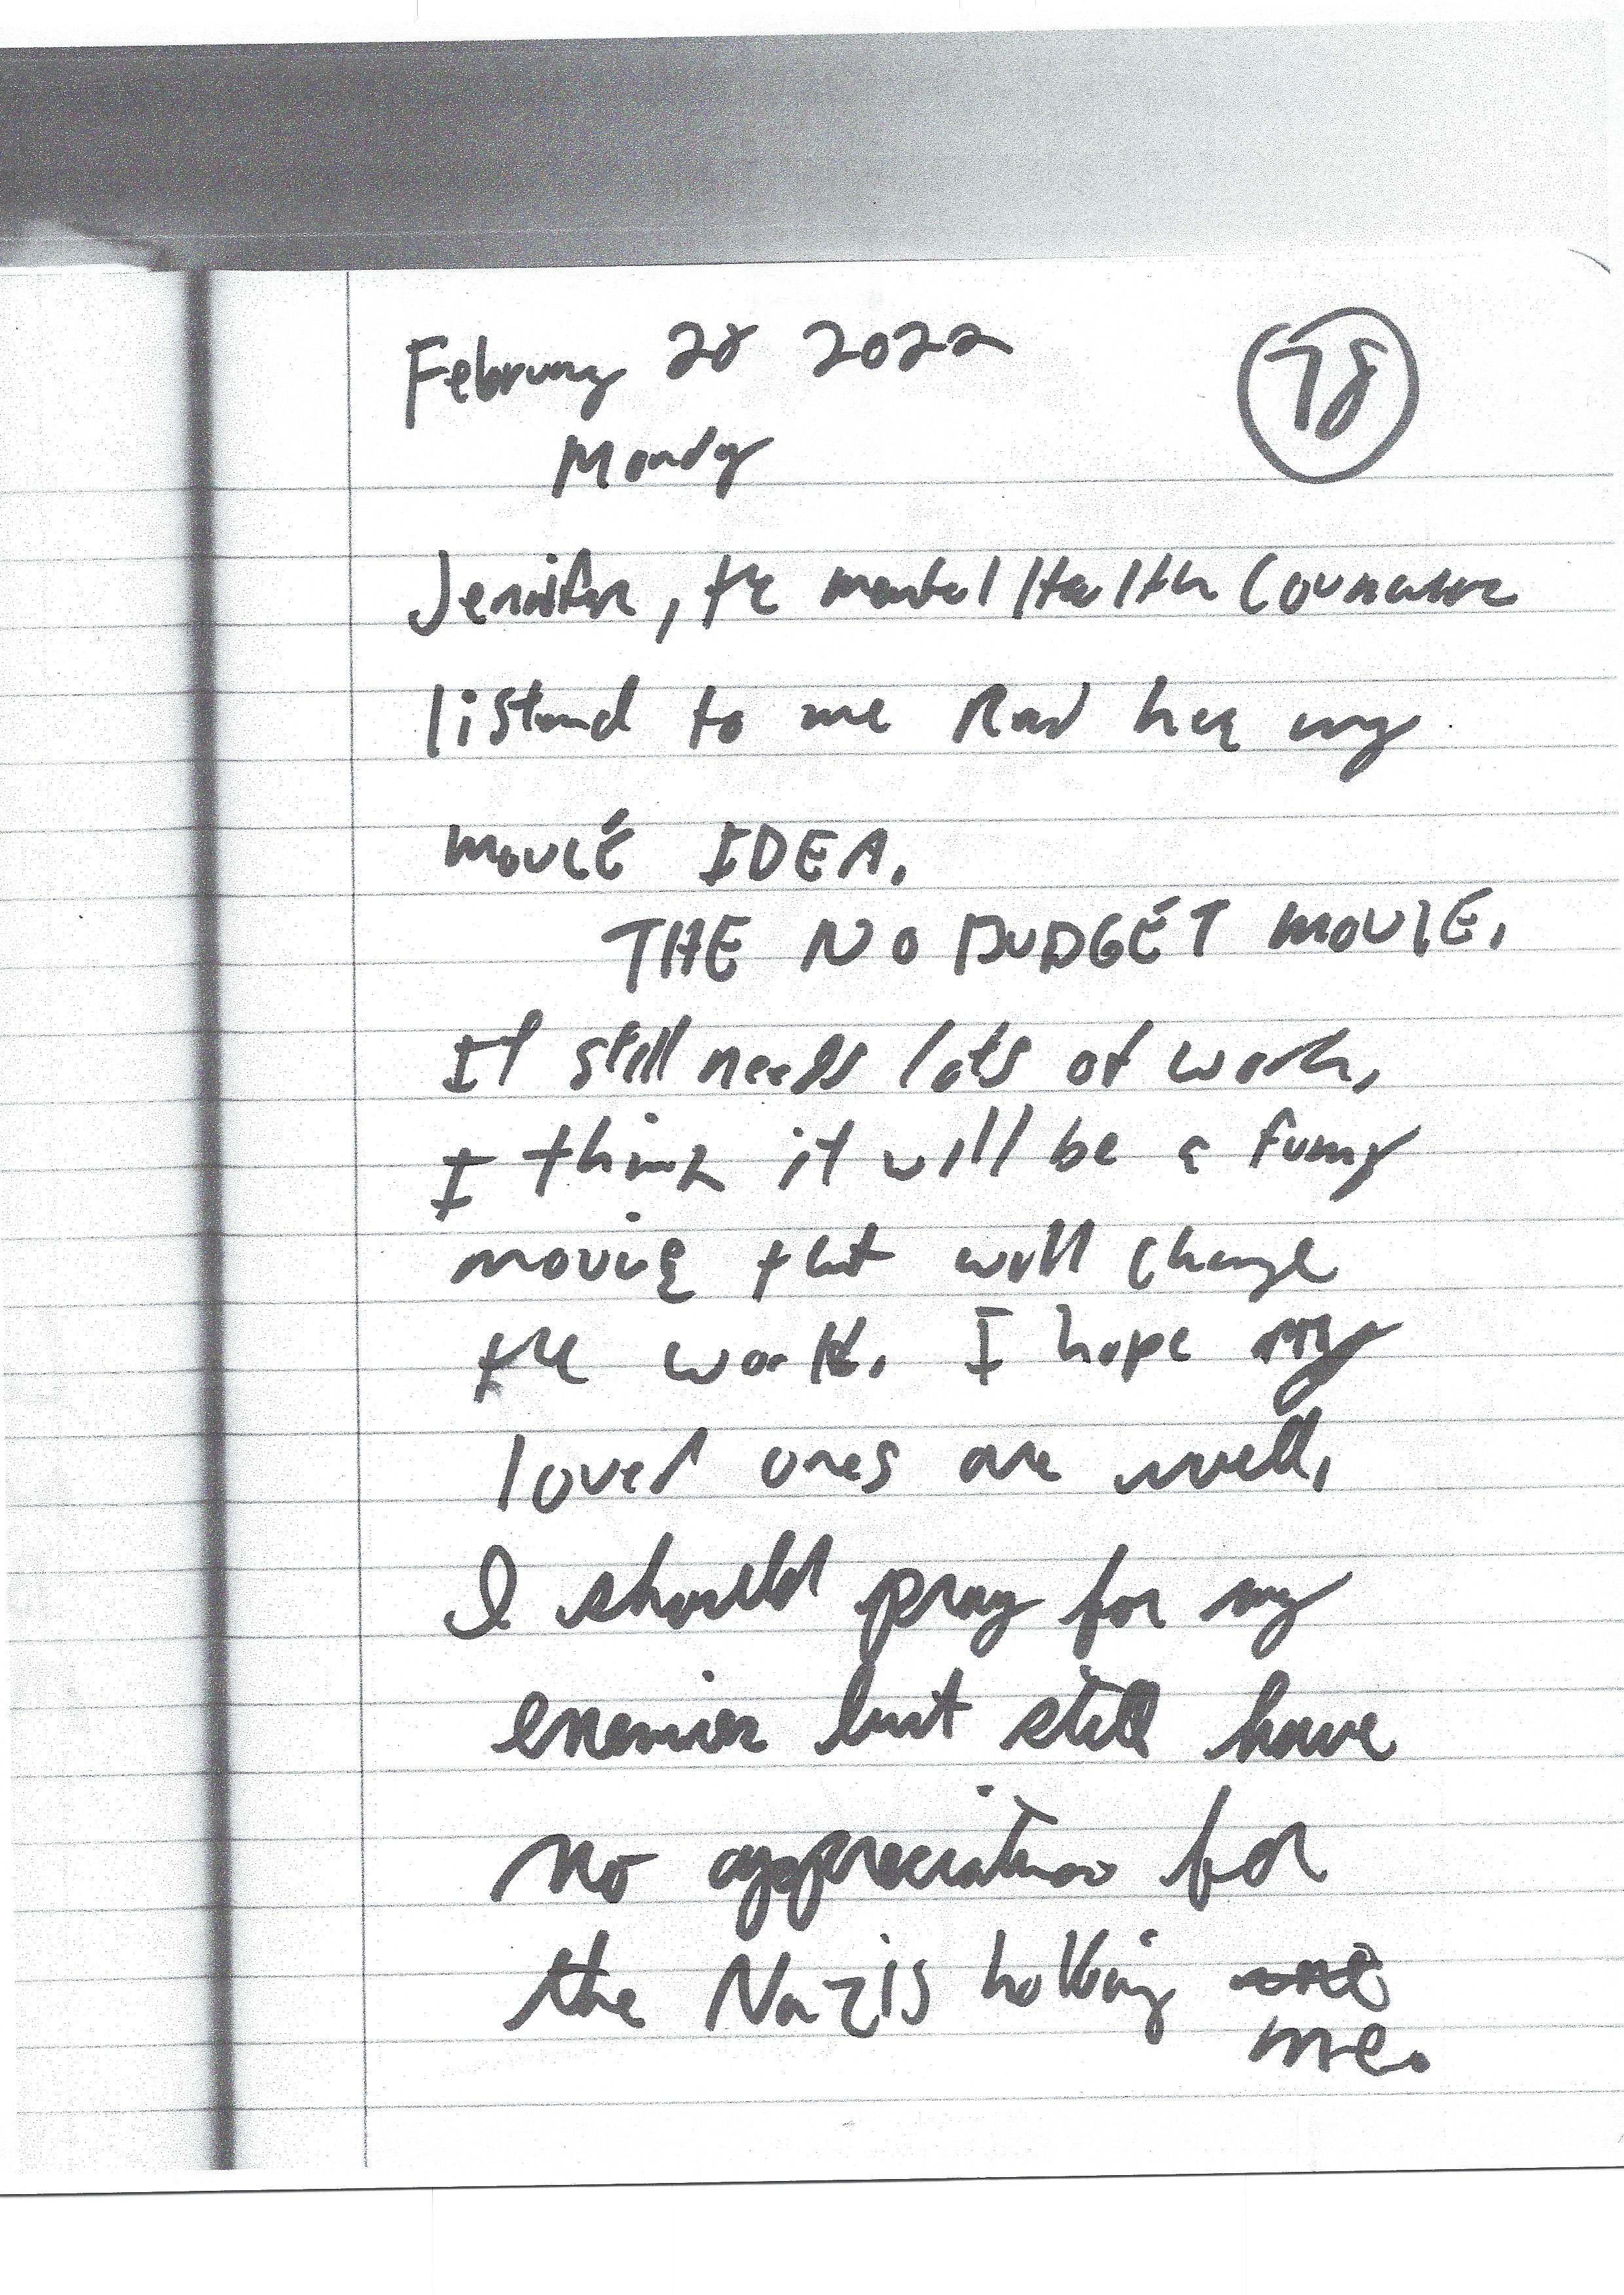 February 28 2022
78
Monday
Jennifer, the mental Health Counselor
listened to me Read her my
MOVIE IDEA.
THE NO BUDGET MOVIE.
It still needs lots of work,
I think it will be a funny
movie that will change
the world. I hope my
loved ones are well,
I should pray for my
enemies but still have
no appreciation for
the Nazis holding
me.